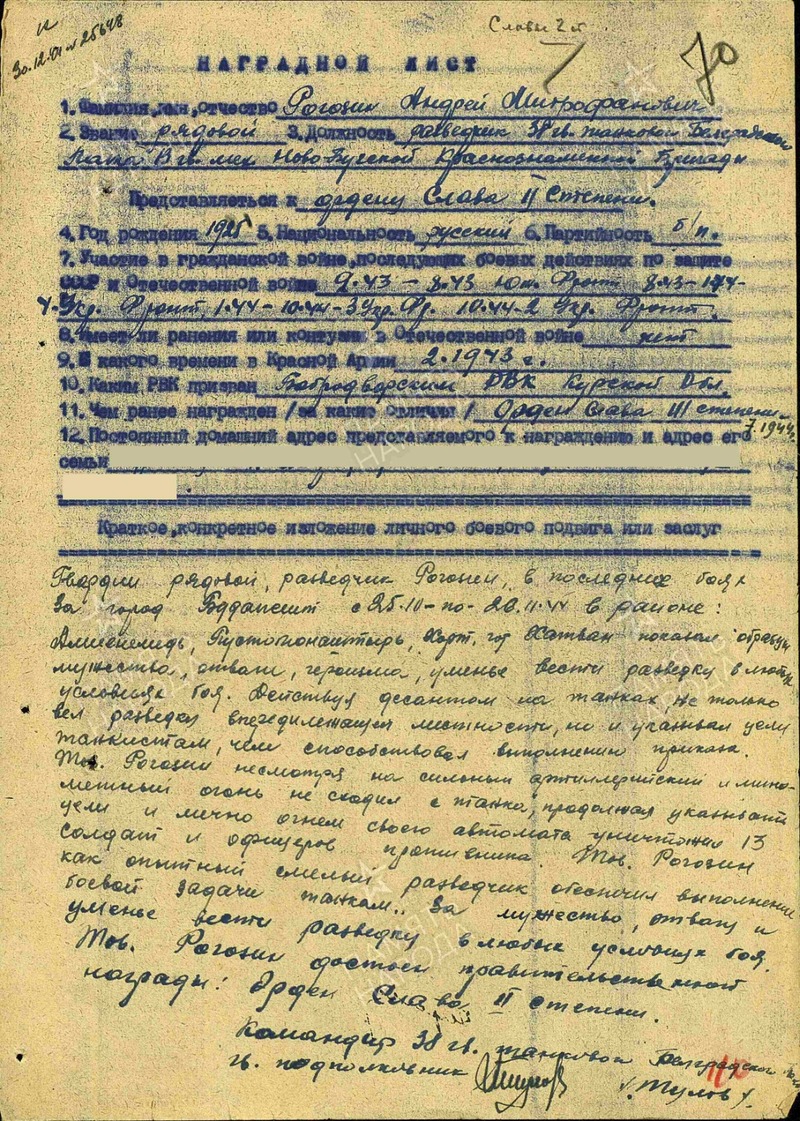 30.12.01 № 25648
Славы 2 ст
70
НАГРАДНОЙ ЛИСТ
1. Фамилия, имя, отчество Рогозин Андрей Митрофанович
2. Звание рядовой 3. Должность разведчик 38 гв. танковой Белградской
13 гв. мех Ново-Бугской Краснознаменной Бригады
Представляеться к ордену Слава II Степени.
4. Год рождения 1925 5. Национальность русский 6. Партийность б/п.
7. Участие в гражданской войне, последующих боевых действиях по защите
СССР и Отечественной войне 2.43 - 8.43 Юж. Фронт 8.43-1.44-
4-Укр. Фронт, 1.44-10.44-3 Укр. Фр. 10.44-2 Укр. Фронт.
8. Имеет ли ранения или контузии в Отечественной войне нет
9. С какого времени в Красной Армии 2.1943 г.
10. Каким РВК призван РВК Курской Обл.
11. Чем ранее награжден /за какие отличия/ Орден Слава III степени
7.1944г.
12. Постоянный домашний адрес представляемого к награждению и адрес его
семьи
Краткое, конкретное изложение личного боевого подвига или заслуг
Гвардии рядовой, разведчик Рогозин, в последних боях
за город Будапешт с 25.10-по- 20.11.44 в районе:
Хатван показал образцы
мужества, отваги, героизма, уменье вести разведку в любых
условиях боя. Действуя десантом на танках, не только
вел разведку впередилежащей местности, но и указывал цели
танкистам, чем способствовал выполнению приказа.
Тов. Рогозин несмотря на сильный артиллерийский и мино-
метный огонь не сходил с танка, продолжая указывать
цели и лично огнем своего автомата уничтожил 13
солдат и офицеров противника. Тов. Рогозин
как опытный смелый разведчик обеспечил выполнение
боевой задачи танкам.. За мужество, отвагу и
уменье вести разведку в любых условиях боя.
Тов. Рогозин достоин правительственной
награды: Орден Слава II степени.
Командир 38 гв. танковой Белградской
гв. подполковник